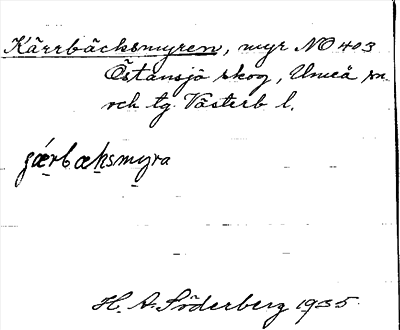 Kärrbäcksmyren, myr NO 403
Östansjö skog, Umeå sn.
och tg. Västerb l.
járbæksmyra
H. A. Söderberg 1935